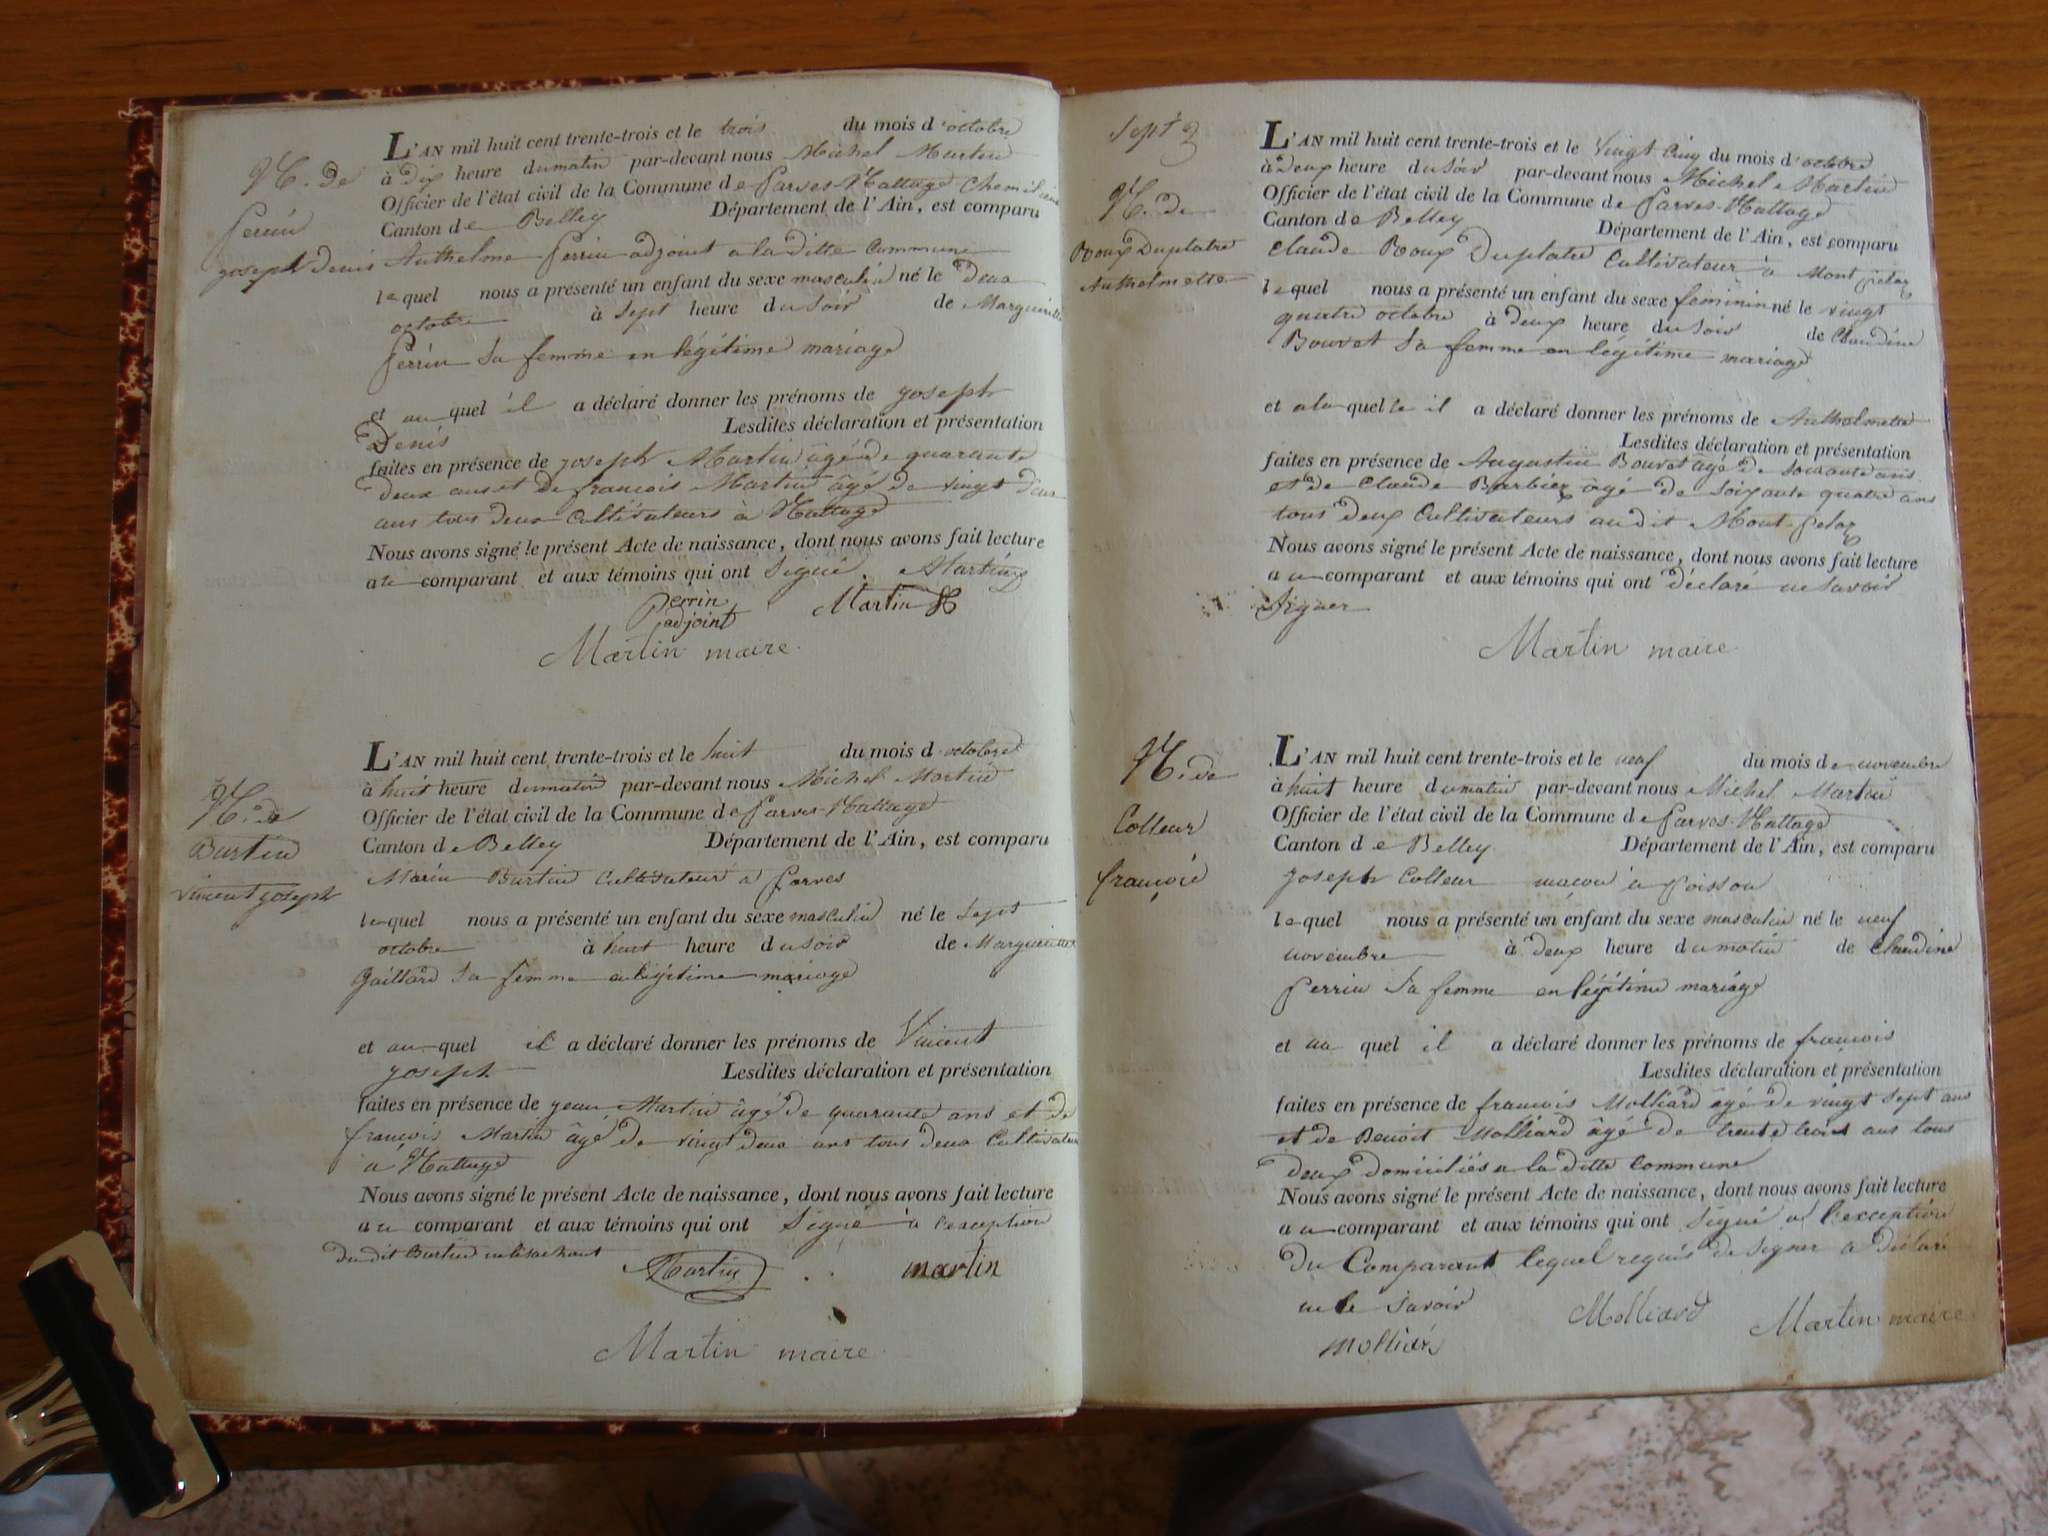 N. de
Perrin
joseph denis
L'AN mil huit cent trente-trois et le trois du mois d'octobre
à dix heure du matin par-devant nous Michel Martin
Officier de l'état civil de la Commune de Parves-Nattage
Canton de Belley Département de l'Ain, est comparu
Anthelme Perrin adjoint a la ditte Commune
lequel nous a présenté un enfant du sexe masculin né le deux
octobre à sept heure du soir de Marguerite
Perrin sa femme en légitime mariage
et au quel il a déclaré donner les prénoms de joseph
Denis Lesdites déclaration et présentation
faites en présence de joseph Martin âgé de quarante
deux ans et de françois Martin âgé de vingt deux
ans tous deux Cultivateurs à Nattage
Nous avons signé le présent Acte de naissance, dont nous avons fait lecture
au comparant et aux témoins qui ont signé. Martin
Perrin
adjoint Martin
Martin maire.
N. de
Burtin
vincent joseph
L'AN mil huit cent trente-trois et le huit du mois d'octobre
à huit heure du matin par-devant nous Michel Martin
Officier de l'état civil de la Commune de Parves-Nattage
Canton de Belley Département de l'Ain, est comparu
Marin Burtin Cultivateur à Parves
lequel nous a présenté un enfant du sexe masculin né le sept
octobre à huit heure du soir de Marguerite
Gaillard sa femme en légitime mariage
et au quel il a déclaré donner les prénoms de Vincent
joseph Lesdites déclaration et présentation
faites en présence de jean Martin âgé de quarante ans et de
françois Martin âgé de vingt deux ans tous deux Cultivateurs
à Nattage
Nous avons signé le présent Acte de naissance, dont nous avons fait lecture
au comparant et aux témoins qui ont signé à l'exception
dudit Burtin
Martin martin
Martin maire
N. de
Roux Duplatre
Anthelmette
L'AN mil huit cent trente-trois et le vingt cinq du mois d'octobre
à deux heure du soir par-devant nous Michel Martin
Officier de l'état civil de la Commune de Parves-Nattage
Canton de Belley Département de l'Ain, est comparu
Claude Roux Duplatre Cultivateur à Mont pelaz
lequel nous a présenté un enfant du sexe feminin né le vingt
quatre octobre à deux heure du soir de Claudine
Bouvet sa femme en légitime mariage
et a la quelle il a déclaré donner les prénoms de Anthelmette
Lesdites déclaration et présentation
faites en présence de Augustin Bouvet agé de soixante ans
et de Claude Barbier âgé de soixante quatre ans
tous deux Cultivateurs audit Mont-pelaz
Nous avons signé le présent Acte de naissance, dont nous avons fait lecture
au comparant et aux témoins qui ont déclaré ne savoir
signer
Martin maire
N. de
Colleur
françois
L'AN mil huit cent trente-trois et le neuf du mois de novembre
à huit heure du matin par-devant nous Michel Martin
Officier de l'état civil de la Commune de Parves-Nattage
Canton de Belley Département de l'Ain, est comparu
joseph Colleur maçon à
lequel nous a présenté un enfant du sexe masculin né le neuf
novembre à deux heure du matin de Claudine
Perrin sa femme en légitime mariage
et au quel il a déclaré donner les prénoms de françois
Lesdites déclaration et présentation
faites en présence de françois Molliard âgé de vingt sept ans
et de Benoît Molliard âgé de trente trois ans tous
deux domiciliés a la ditte commune
Nous avons signé le présent Acte de naissance, dont nous avons fait lecture
au comparant et aux témoins qui ont signé a l'exception
du Comparant lequel requis de signer a déclaré
ne le savoir
Molliard Martin maire
molliard